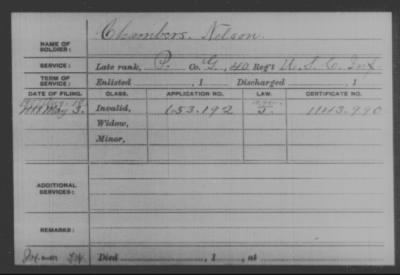 Chambers, Nelson.
NAME OF SOLDIER:
SERVICE: Late rank, P. Co. G, 40 Reg't U. S. C. Inf.
TERM OF SERVICE: Enlisted , 1 Discharged , 1
DATE OF FILING. CLASS. APPLICATION NO. LAW. CERTIFICATE NO.
May 3. Invalid, 153.192 J. 1113.990
Widow,
Minor,
ADDITIONAL SERVICES:
REMARKS:
Died , 1 , at